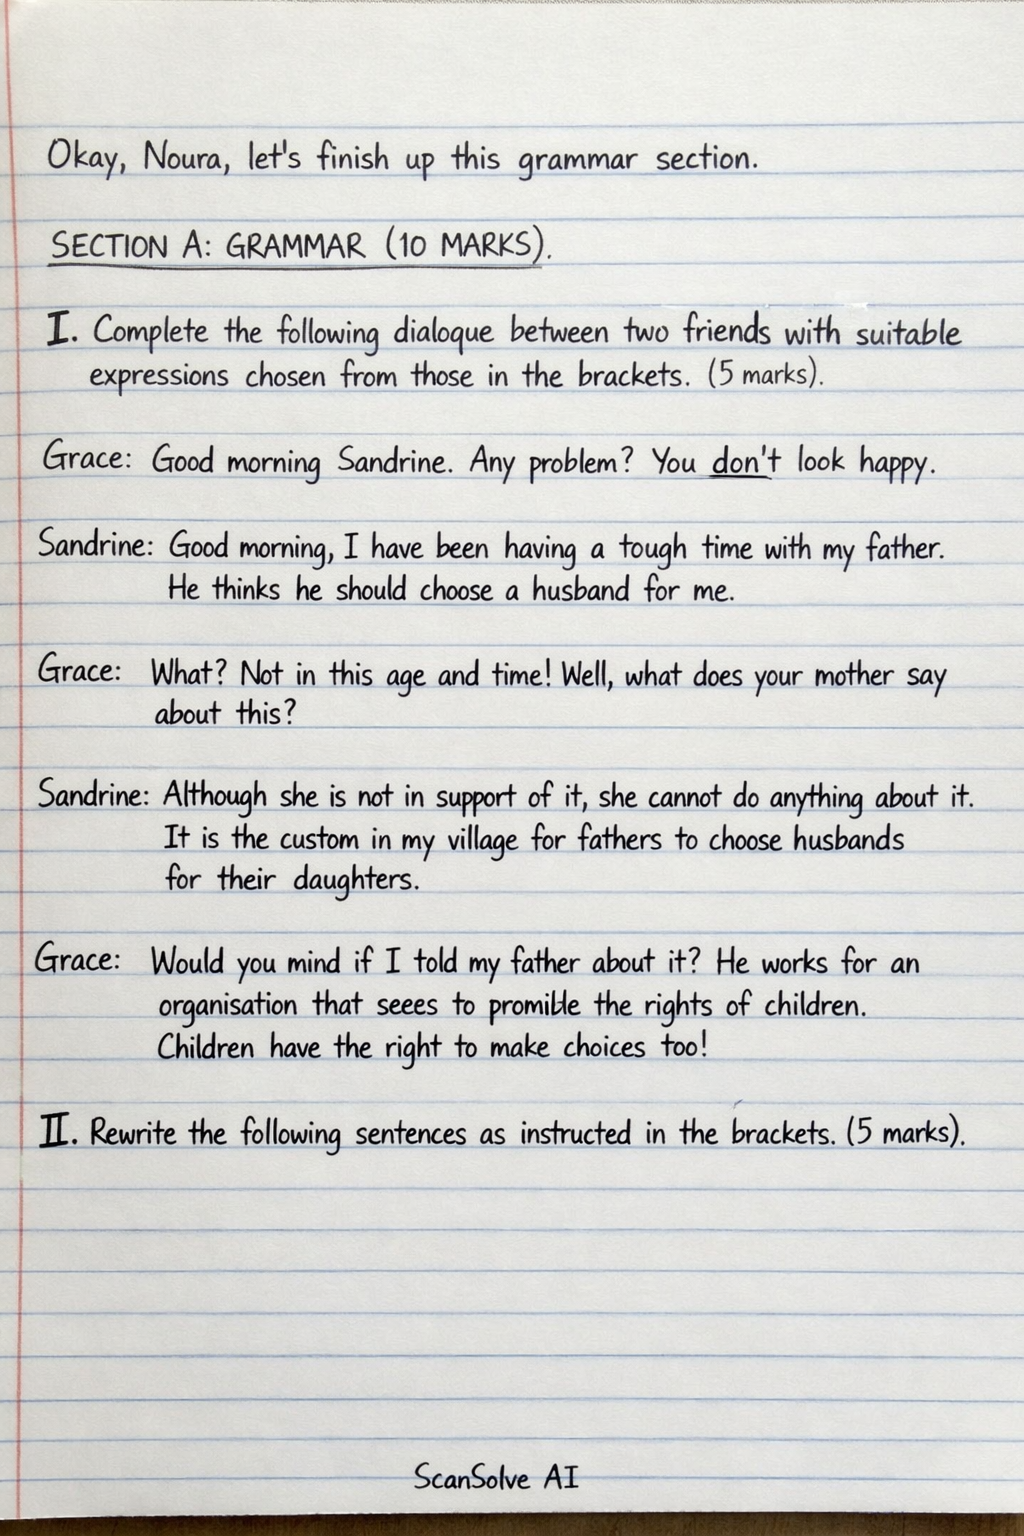 Okay, Noura, let's finish up this grammar section.
SECTION A: GRAMMAR (10 MARKS).
I. Complete the following dialogue between two friends with suitable
expressions chosen from those in the brackets. (5 marks).
Grace: Good morning Sandrine. Any problem? You don't look happy.
Sandrine: Good morning, I have been having a tough time with my father.
He thinks he should choose a husband for me.
Grace: What? Not in this age and time! Well, what does your mother say
about this?
Sandrine: Although she is not in support of it, she cannot do anything about it.
It is the custom in my village for fathers to choose husbands
for their daughters.
Grace: Would you mind if I told my father about it? He works for an
organisation that seees to the rights of children.
Children have the right to make choices too!
II. Rewrite the following sentences as instructed in the brackets. (5 marks).
ScanSolve AI